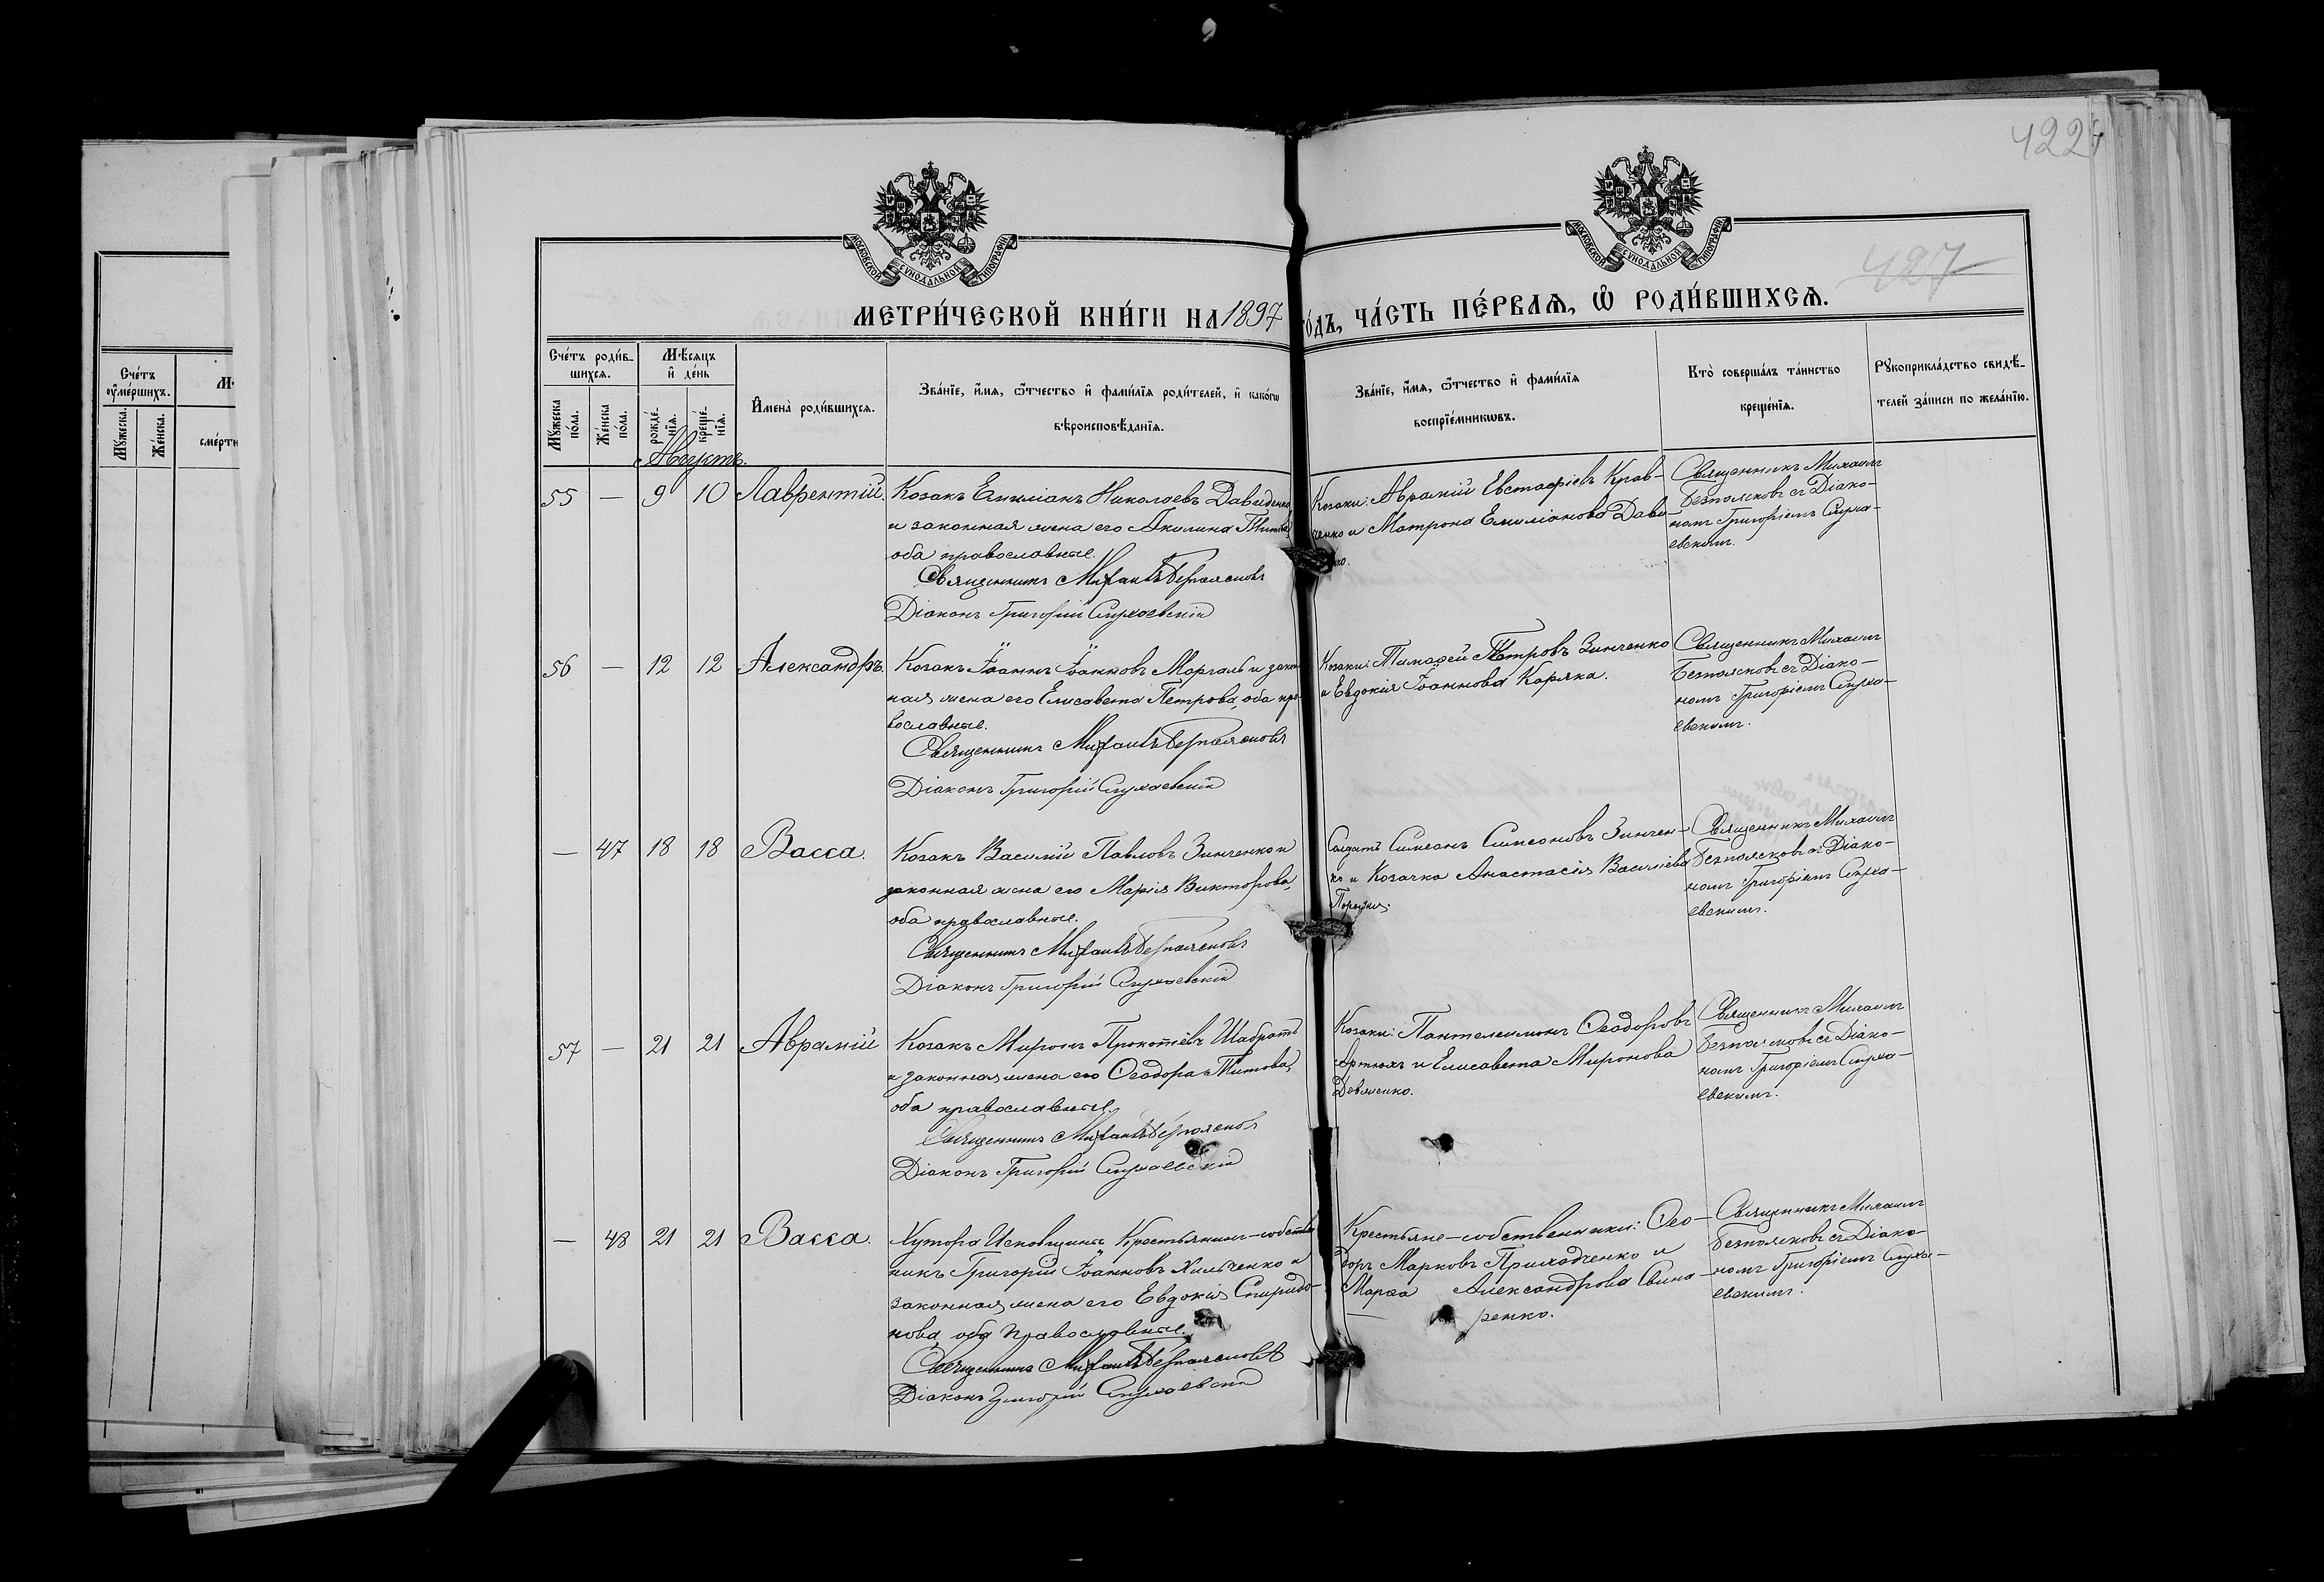 422
427
МОСКОВСКОЙ СѴНОДАЛЬНОЙ ТИПОГРАФІИ
МОСКОВСКОЙ СѴНОДАЛЬНОЙ ТИПОГРАФІИ
МЕТРИ́ЧЕСКОЙ КНИ́ГИ НА 1897 ГО́ДЪ, ЧА́СТЬ ПЕ́РВАѦ, Ѽ РОДИ́ВШИХСѦ.
Сче́тъ
оумє́ршихъ.
Мꙋ́жеска.
Же́нска.
сме́рти
Сче́тъ роди́в-
шихсѧ.
Мꙋ́жеска по́ла.
Же́нска по́ла.
Мѣ́сѧцъ
и҆ де́нь
рожде́нїѧ.
креще́нїѧ.
И҆мена̀ роди́вшихсѧ.
Зва́нїе, и҆́мѧ, ѻ҆́тчество и҆ фами́лїѧ роди́телей, и҆ како́гѡ
вѣроисповѣ́данїѧ.
Зва́нїе, и҆́мѧ, ѻ҆́тчество и҆ фами́лїѧ
воспрїе́мникѡвъ.
Кто̀ соверша́лъ та́инство
креще́нїѧ.
Рꙋкоприкла́дство свидѣ́-
телей за́писи по жела́нїю.
Августъ.
55 — 9 10 Лаврентій.
Козакъ Емиліанъ Николаевъ Давиденко
и законная жена его Акилина Титова
оба православные.
Священникъ Михаилъ Безпоясковъ
Діаконъ Григорій
Козаки: Аврамій Евстафіевъ Крав-
ченко и Матрона Емиліанова Дави-
Священникъ Михаилъ
Безпоясковъ съ Діако-
номъ Григоріемъ
евскимъ.
56 — 12 12 Александръ.
Козакъ Іоаннъ Іоанновъ Маргаль и закон
ная жена его Елисавета Петрова, оба пра
вославные.
Священникъ Михаилъ Безпоясковъ
Діаконъ Григорій
Козаки: Тимофей Петровъ Зинченко
и Евдокія Іоаннова Каряка.
Священникъ Михаилъ
Безпоясковъ съ Діако-
номъ Григоріемъ
евскимъ.
— 47 18 18 Васса.
Козакъ Василій Павловъ Зинченко и
законная жена его Марія Викторова,
оба православные.
Священникъ Михаилъ Безпоясковъ
Діаконъ Григорій
Солдатъ Симеонъ Симеоновъ Зинчен-
ко и Козачка Анастасія Василіева
Священникъ Михаилъ
Безпоясковъ съ Діако-
номъ Григоріемъ
евскимъ.
57 — 21 21 Аврамій
Козакъ Миронъ Прокопіевъ Шабратъ
и законная жена его Ѳеодора Титова,
оба православные.
Священникъ Михаилъ Безпоясковъ
Діаконъ Григорій
Козаки: Пантелеимонъ Ѳеодоровъ
Артюхъ и Елисавета Миронова
Довженко.
Священникъ Михаилъ
Безпоясковъ съ Діако-
номъ Григоріемъ
евскимъ.
— 48 21 21 Васса.
Хутора Исковщины Крестьянинъ-собствен
никъ Григорій Іоанновъ Хильченко и
законная жена его Евдокія Спиридо-
нова, оба православные.
Священникъ Михаилъ Безпоясковъ
Діаконъ Григорій
Крестьяне-собственники: Ѳео-
доръ Марковъ Приходченко и
Марѳа Александрова Свина-
ренко.
Священникъ Михаилъ
Безпоясковъ съ Діако-
номъ Григоріемъ
евскимъ.